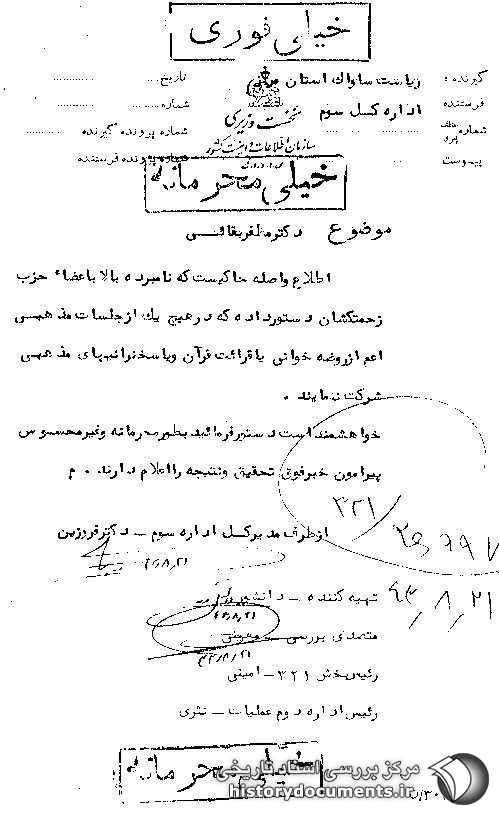 خیلی فوری
گیرنده : ریاست ساواک استان
فرستنده اداره کل سوم
شماره
پیوست
نخست وزیری
سازمان اطلاعات و امنیت کشور
تاریخ
شماره
شماره پرونده گیرنده
شماره پرونده فرستنده
خیلی محرمانه
موضوع دکتر مظفر بقائی
اطلاع واصله حاکیست که نامبرده بالا باعضاء حزب
زحمتکشان دستور داده که در هیچ یک از جلسات مذهبی
اعم از روضه خوانی یا قرائت قرآن و یا سخنرانیهای مذهبی
شرکت ننمایند .
خواهشمند است دستور فرمائید بطور محرمانه و غیر محسوس
پیرامون خبر فوق تحقیق و نتیجه را اعلام دارند . م
۳۲۱/
از طرف مدیر کل اداره سوم –
۴۳/۸/۲۱
تهیه کننده –
۴۳/۸/۲۱
۴۳/۸/۲۱
متصدی بررسی
۴۳/۸/۲۱
رئیس بخش ۳۲۱ – امینی
رئیس اداره دوم عملیات –
خیلی محرمانه
مرکز بررسی اسناد تاریخی
historydocuments.ir